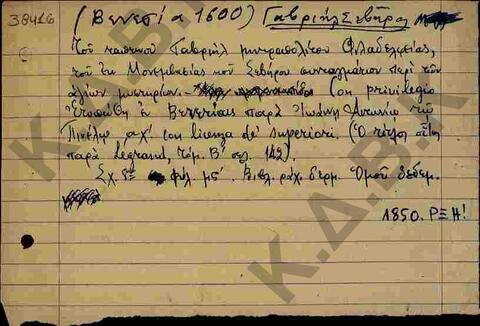 38416
(Βενετία 1600) Γαβριήλ Σεβῆρος
Τοῦ ταπεινοῦ Γαβριήλ μητροπολίτου Φιλαδελφείας,
τοῦ ἐκ Μονεμβασίας τοῦ Σεβήρου συνταγμάτιον περὶ τῶν
ἁγίων μυστηρίων. Con privilegio
Ἐτυπώθη ἐν Βενετίαις παρὰ Ἀντωνίῳ τῷ
Πινέλῳ αχ' con licenza de' superiori. (Ὁ τίτλος
παρὰ Legrand, τόμ. Β' σελ. 142).
Σχ. φύλ. με'. Βιβλ. ράχ. δερμ. Ὁμοῦ δεδεμ.
1850. ΡΞΗ!
Κ.Δ.Β.Κ
Κ.Δ.Β.Κ